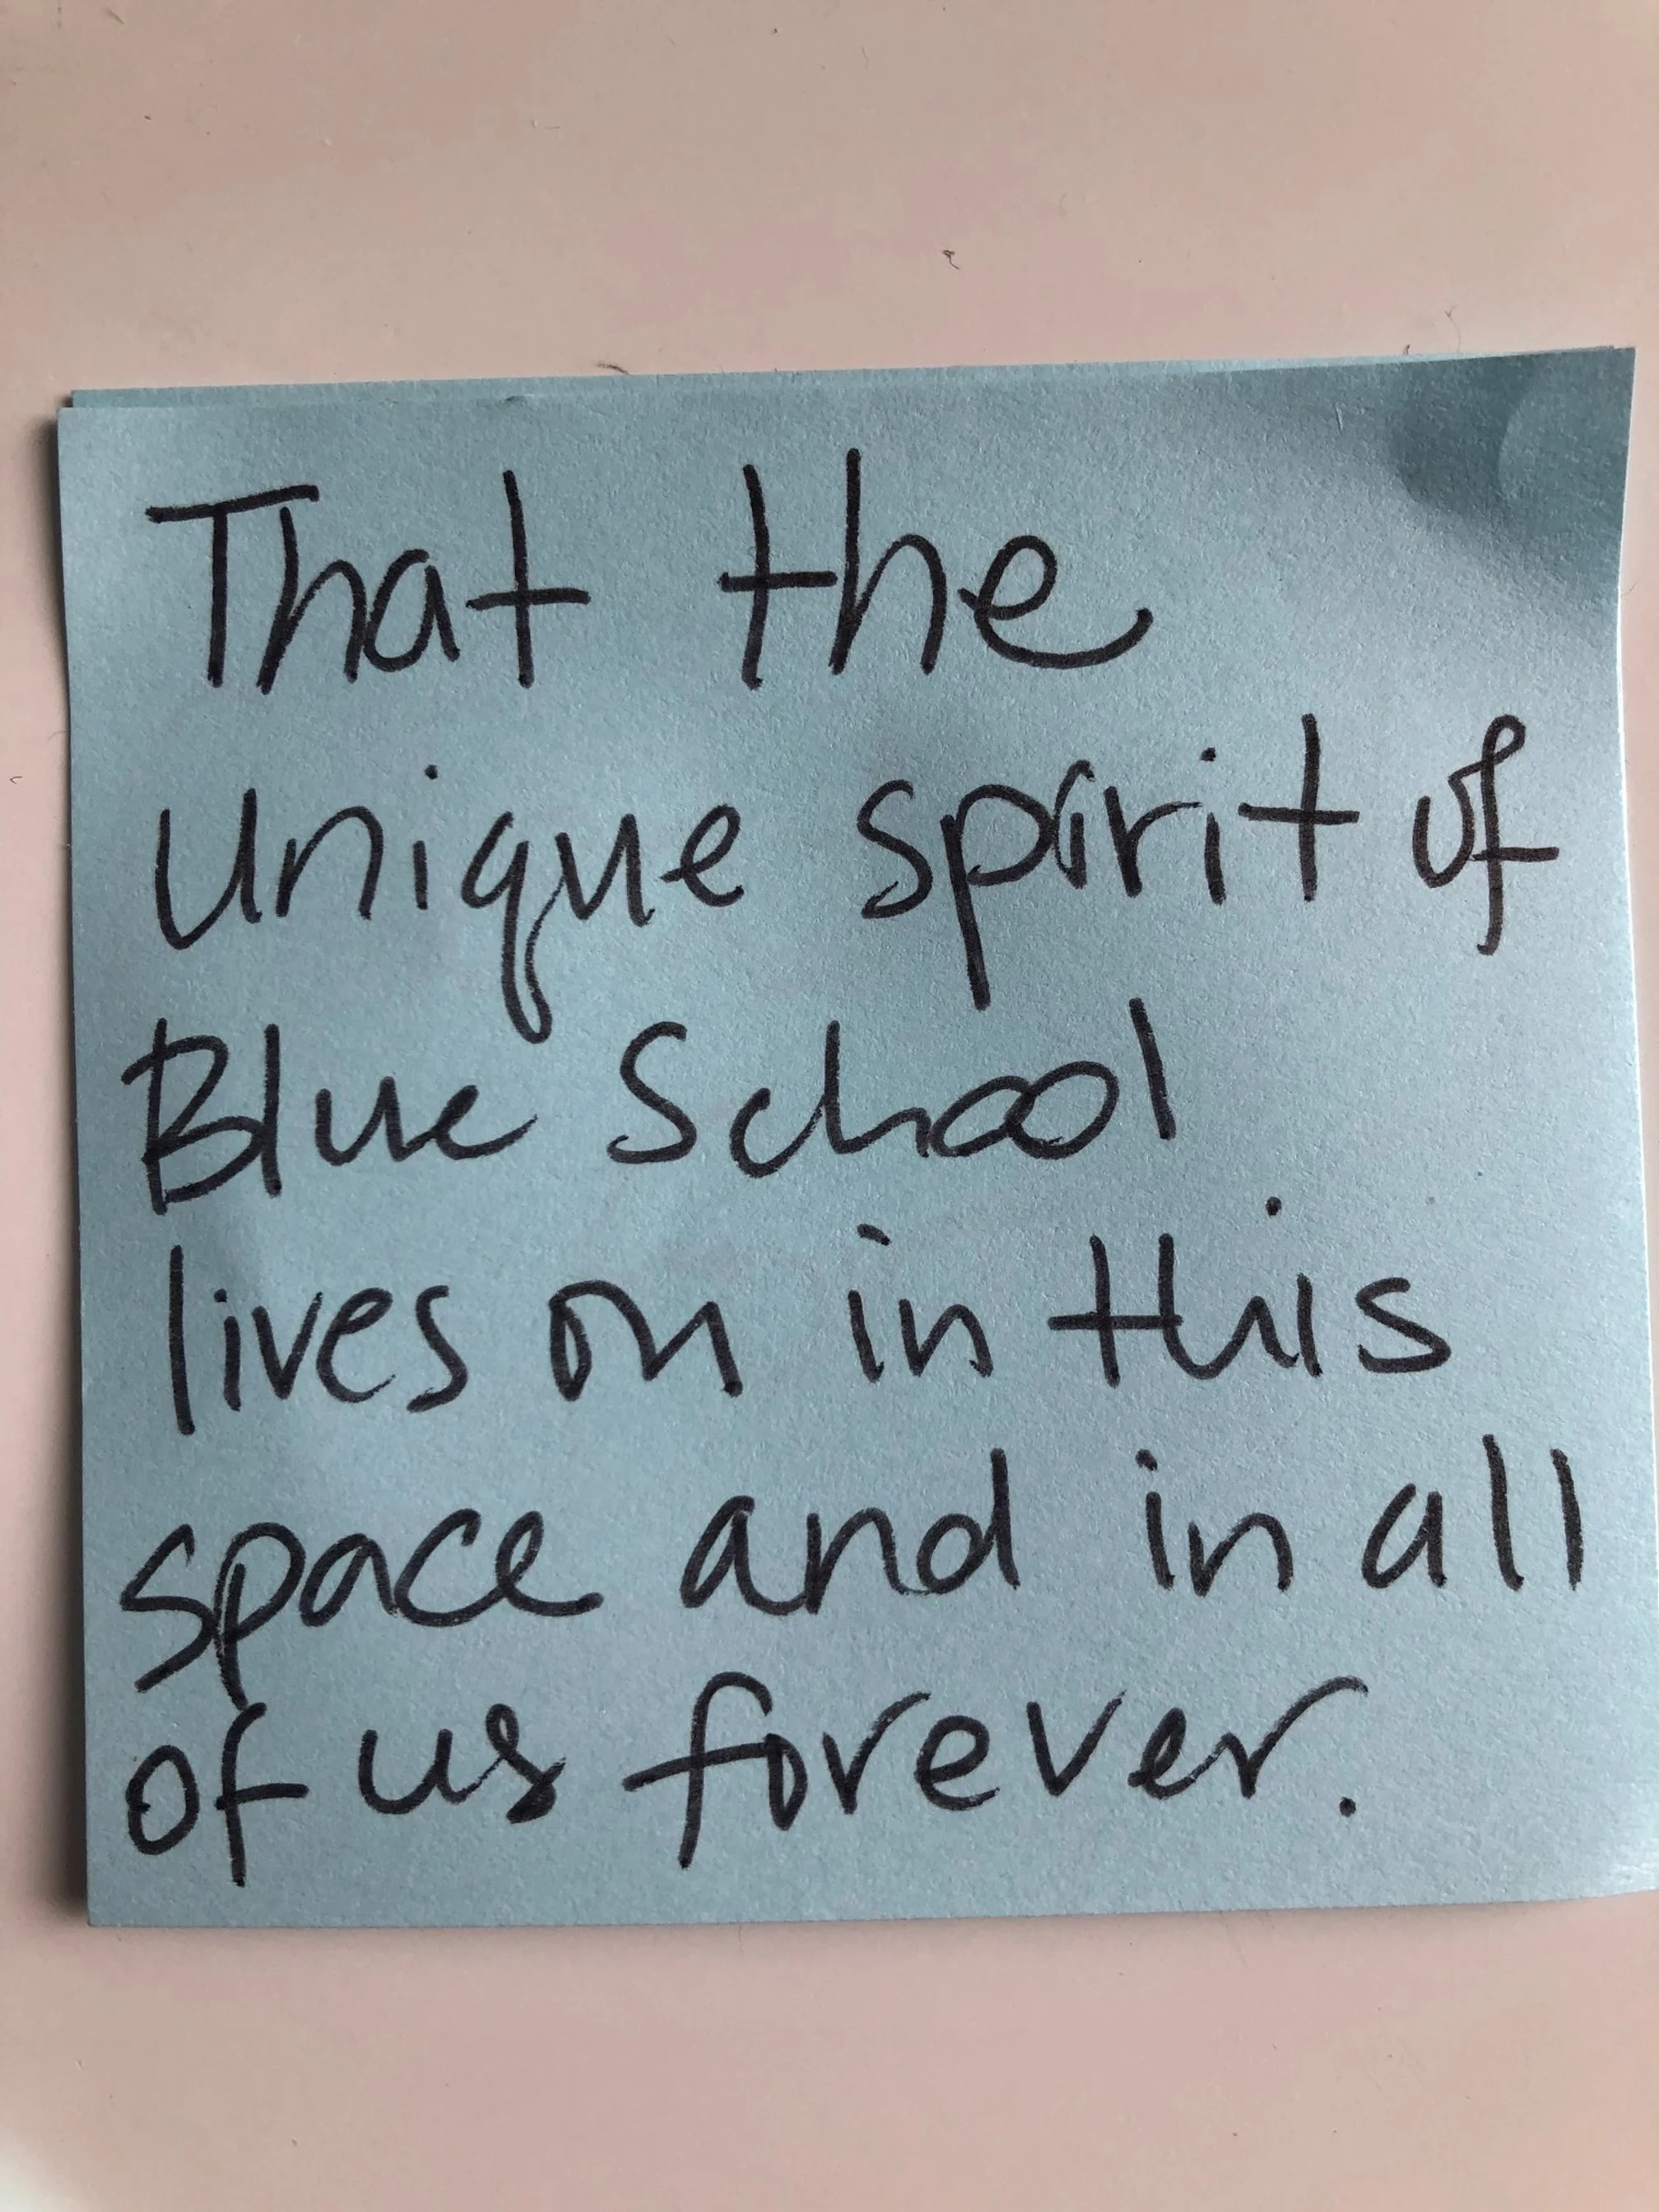 That the
unique spirit of
Blue School
lives on in this
space and in all
of us forever.